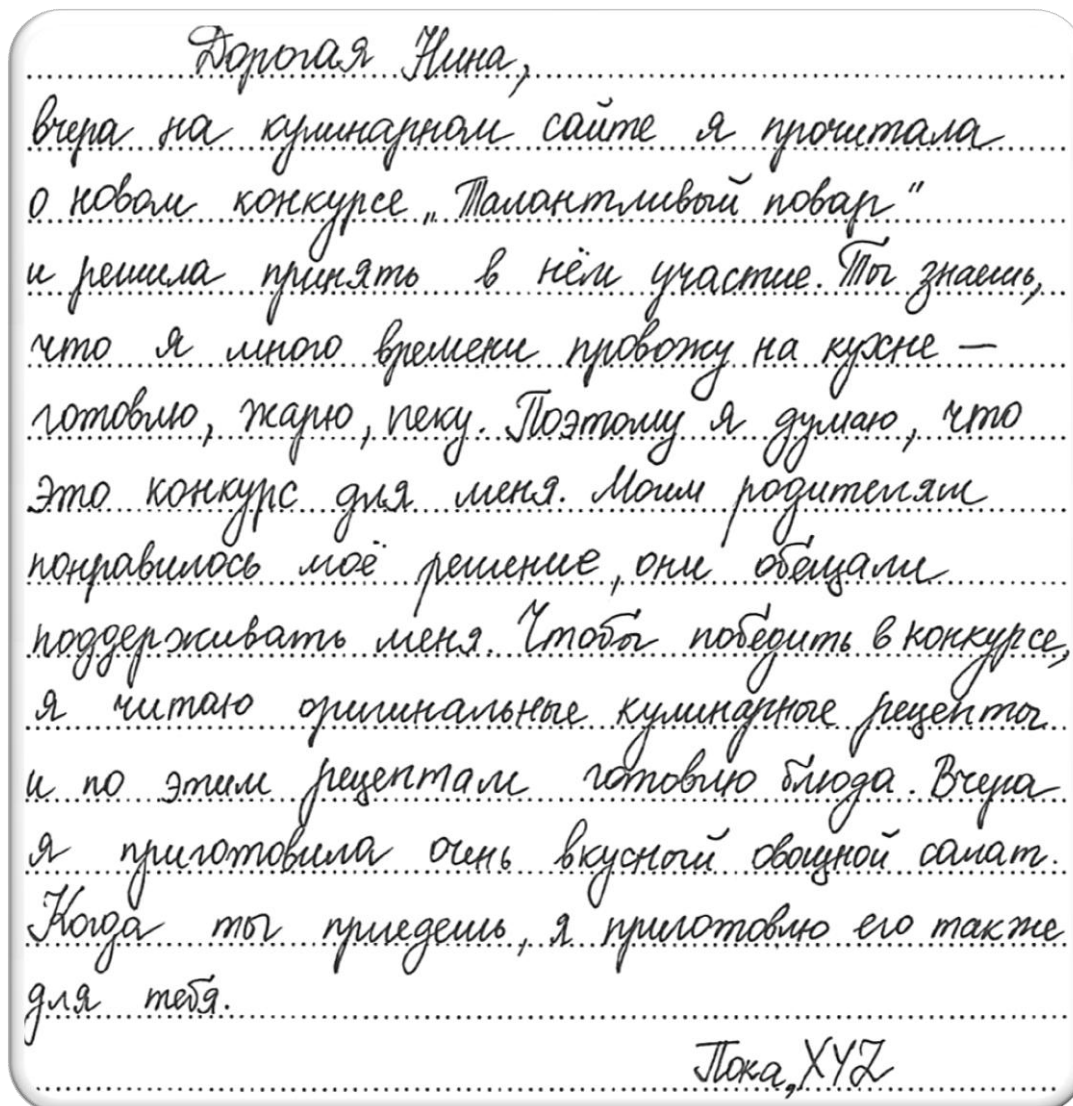 Дорогая Нина,
вчера на кулинарном сайте я прочитала
о новом конкурсе „Талантливый повар"
и решила принять в нём участие. Ты знаешь,
что я много времени провожу на кухне —
готовлю, жарю, пеку. Поэтому я думаю, что
это конкурс для меня. Моим родителям
понравилось моё решение, они обещали
поддерживать меня. Чтобы победить в конкурсе,
я читаю оригинальные кулинарные рецепты
и по этим рецептам готовлю блюда. Вчера
я приготовила очень вкусный овощной салат.
Когда ты приедешь, я приготовлю его также
для тебя.
Пока, XYZ